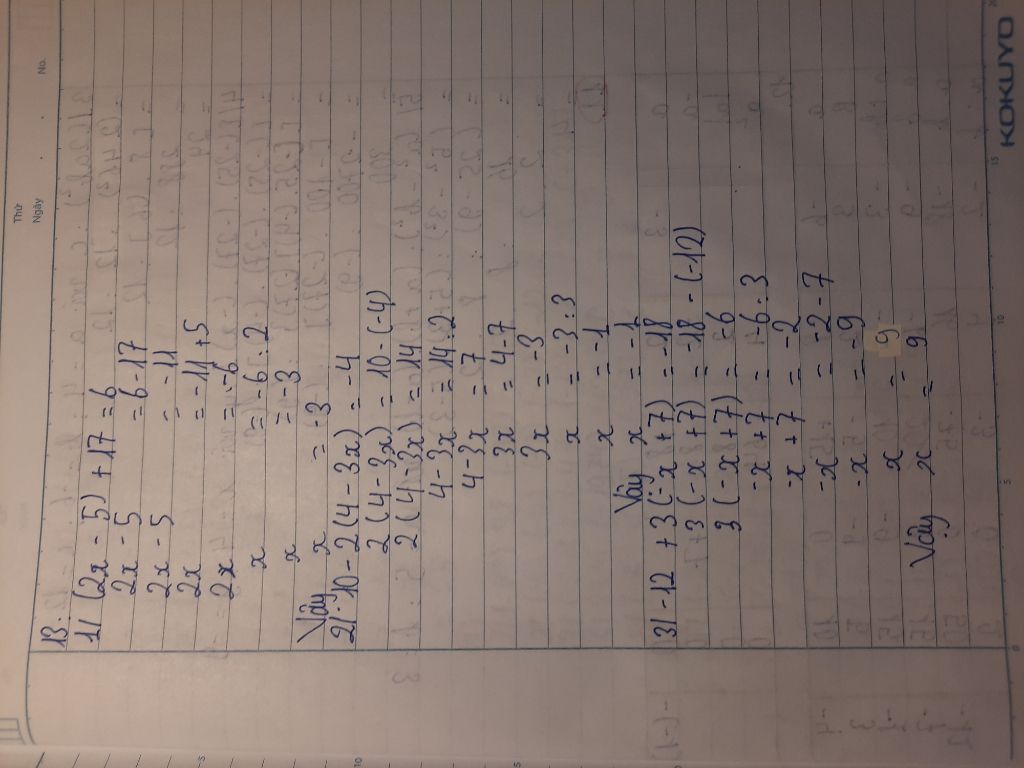 Thứ
Ngày
No.
13.
1/ (2x - 5) + 17 = 6
2x - 5 = 6 - 17
2x - 5 = -11
2x = -11 + 5
2x = -6
x = -6 : 2
x = -3
Vậy x = -3
2/ 10 - 2(4 - 3x) = -4
2(4 - 3x) = 10 - (-4)
2(4 - 3x) = 14
4 - 3x = 14 : 2
4 - 3x = 7
3x = 4 - 7
3x = -3
x = -3 : 3
x = -1
Vậy x = -1
3/ -12 + 3(-x + 7) = -18
+3(-x + 7) = -18 - (-12)
3(-x + 7) = -6
-x + 7 = -6 : 3
-x + 7 = -2
-x = -2 - 7
-x = -9
x = 9
Vậy x = 9
KOKUYO